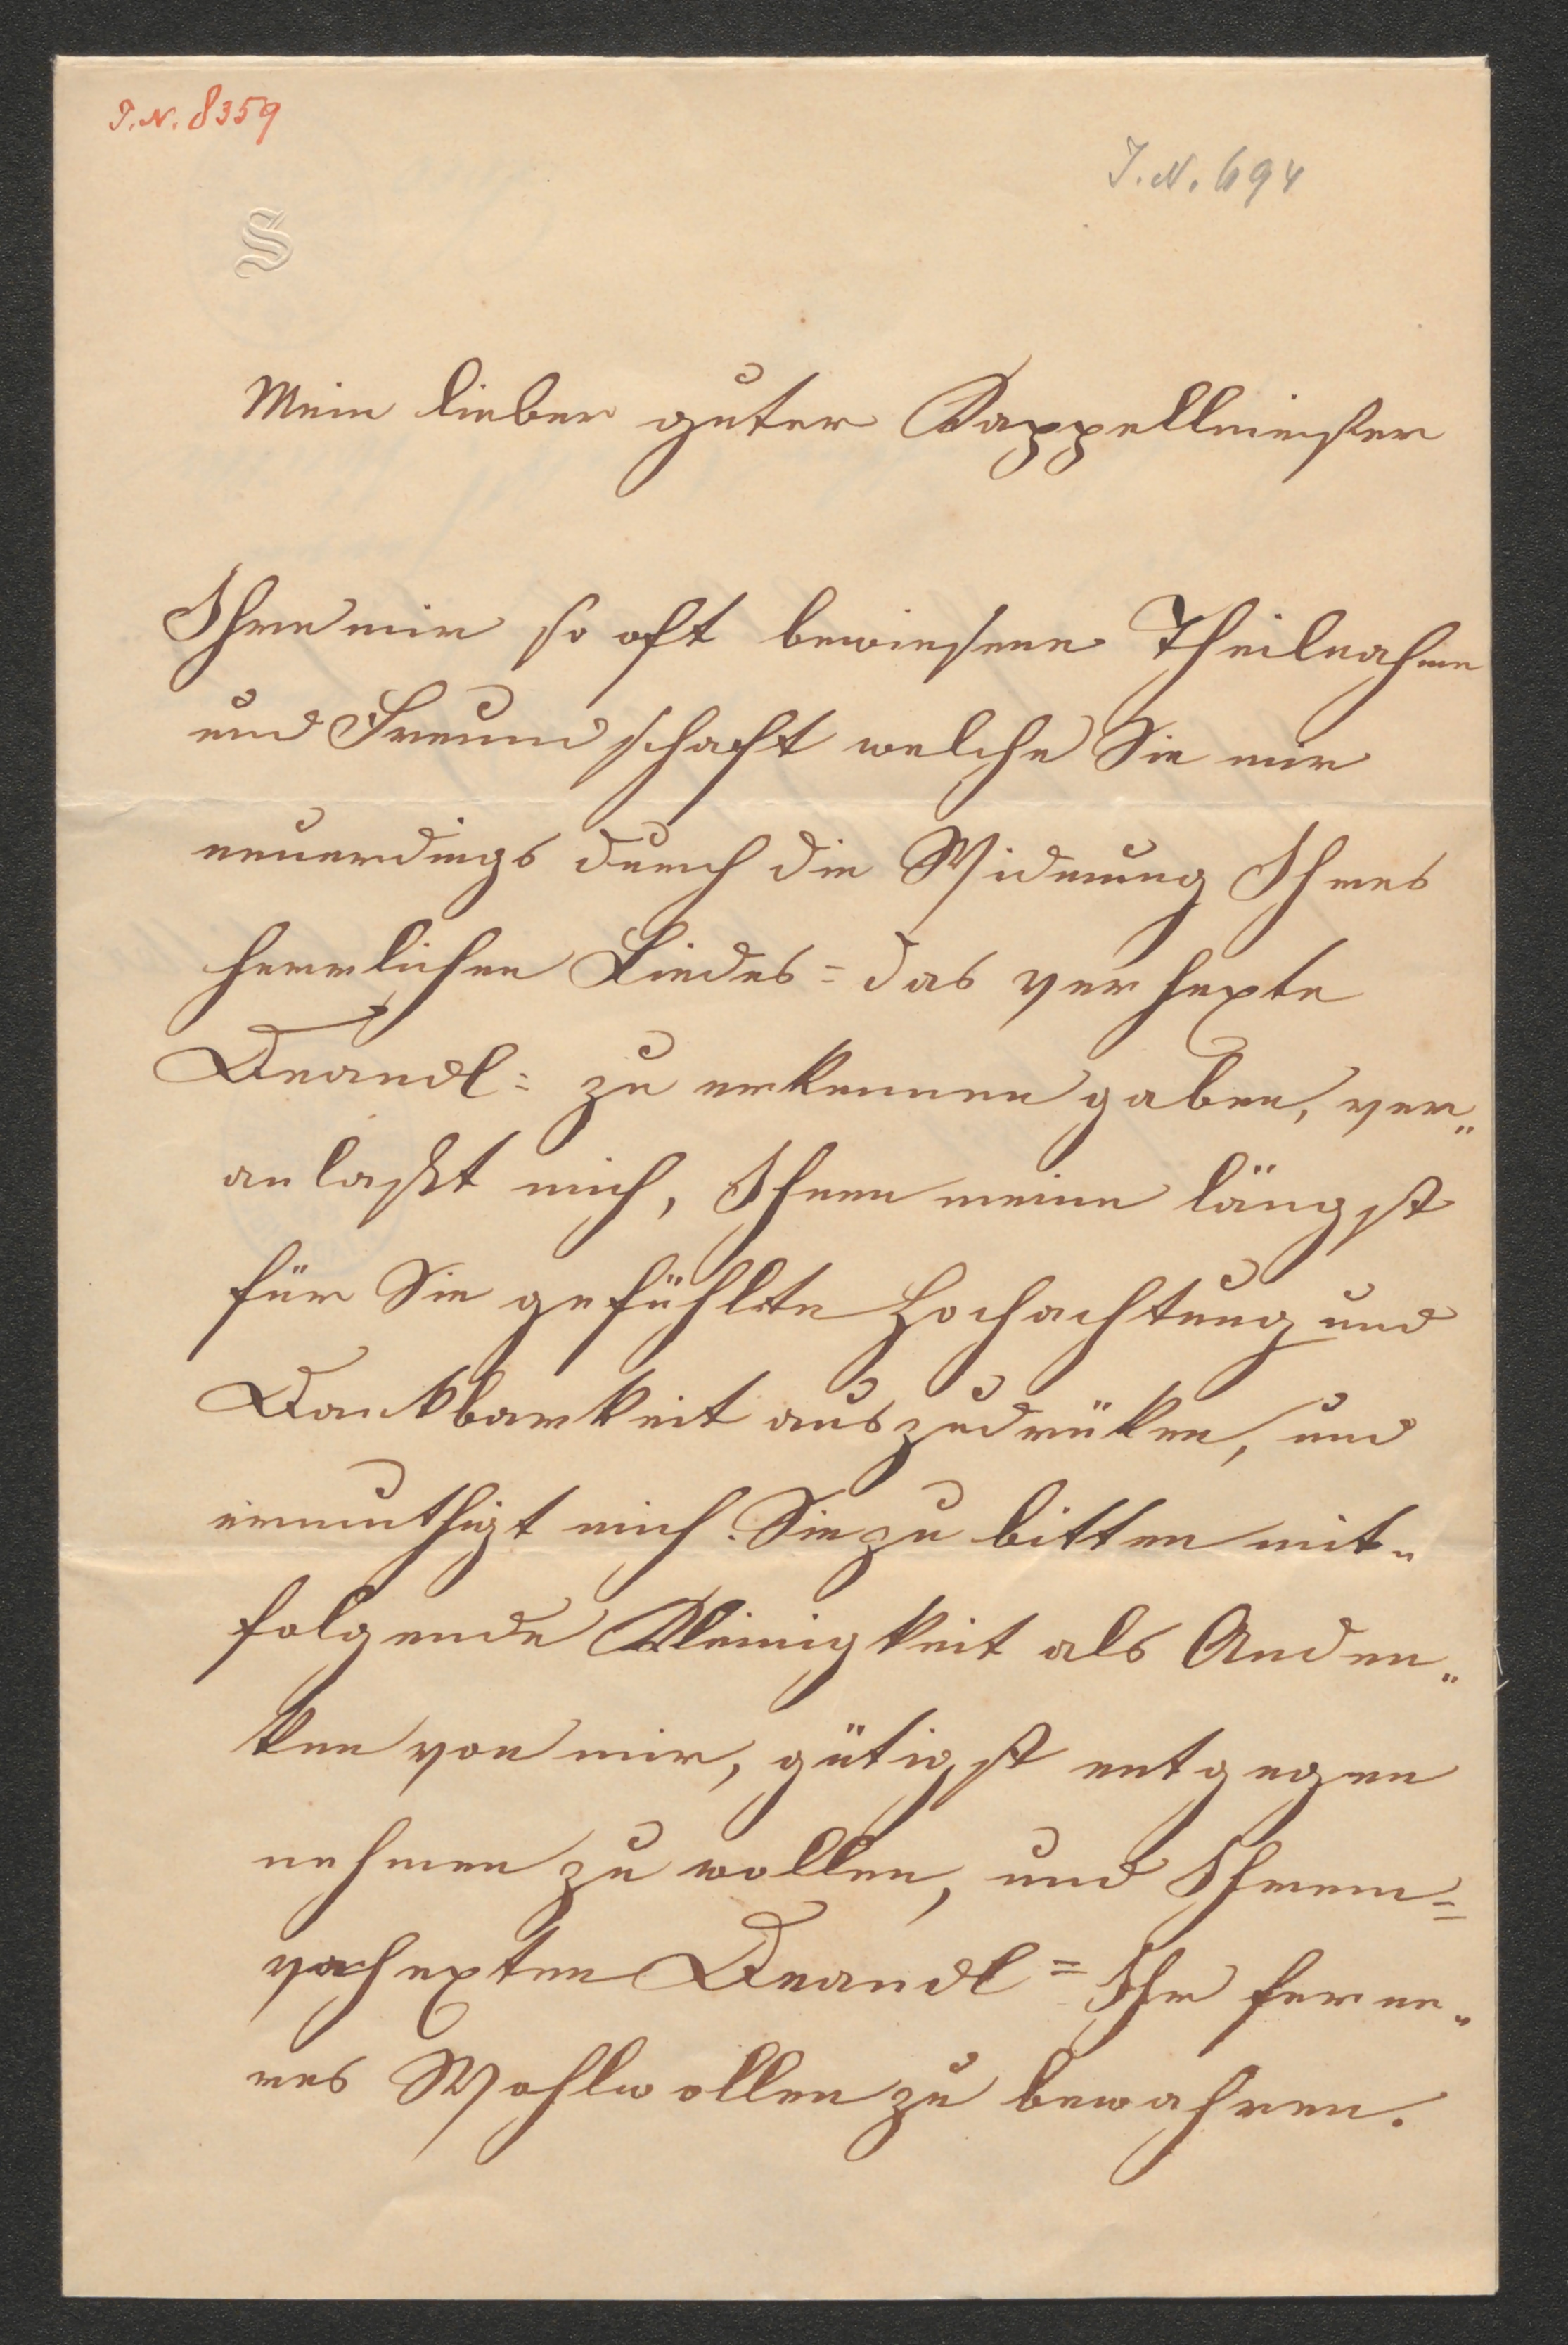 J. N. 8359
J. N. 694
S
Mein lieber guter Kappellmeister
Ihre mir so oft bewiesene Theilnahme
und Freundschaft welche Sie mir
neuerdings durch die Widmung Ihres
herrlichen Liedes = das verhexte
Deandl = zu erkennen gaben, ver„
anlaßt mich, Ihnen meine längst
für Sie gefühlte Hochachtung und
Dankbarkeit auszudrüken, und
ermuthigt mich Sie zu bitten mit„
folgende Kleinigkeit als Anden„
ken von mir, gütigst entgegen
nehmen zu wollen, und Ihrem =
verhexten Deandl = Ihr ferne„
res Wohlwollen zu bewahren.